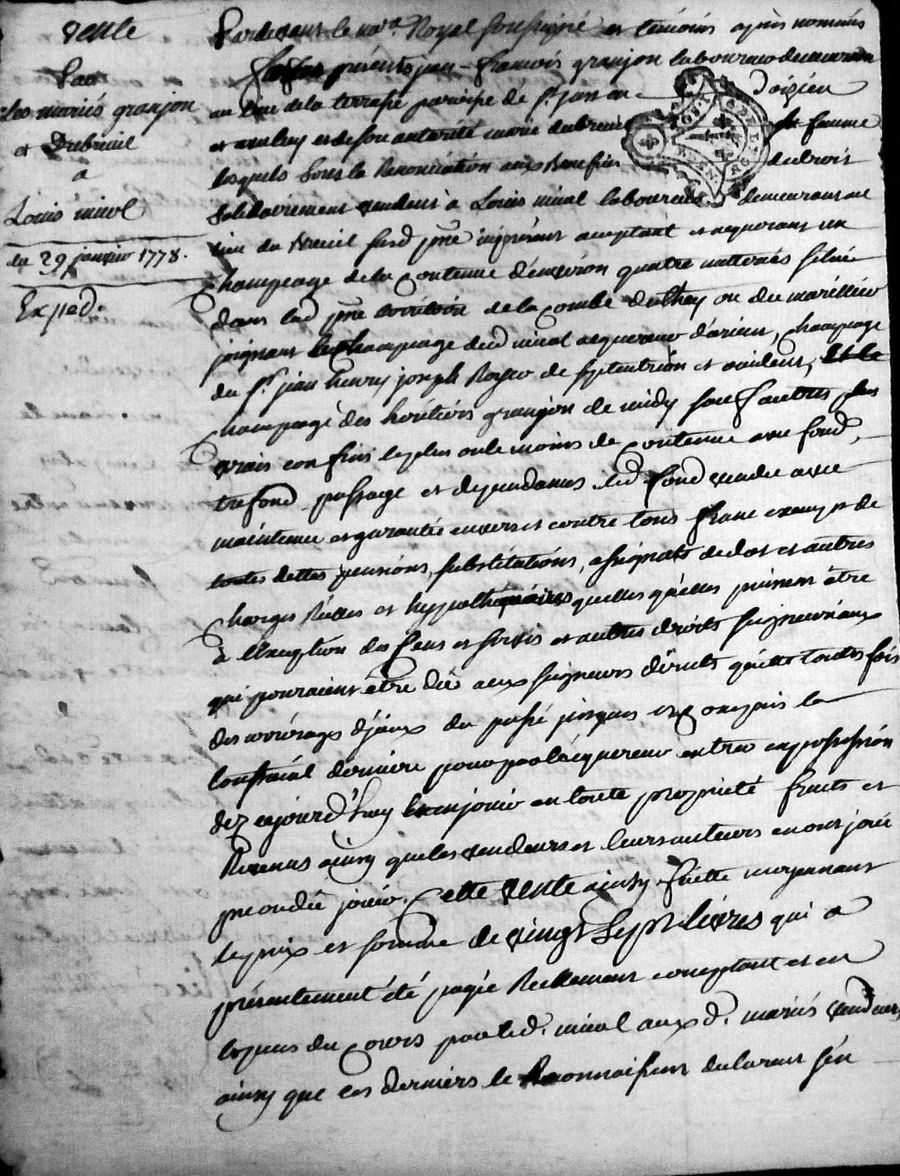 vente
Par
Les mariés granjon
et Dubreuil
à
Louis minol
du 29 janvier 1778.
Exped.
Pardevant le no.re Royal soussigné et temoins après nommés
furent présents jean-françois granjon laboureur demeurant
au lieu de la terrasse paroisse de st jean en Doizieu
et de son autorité marie dubreuil sa femme
lesquels sous la Renonciation aux Benefices de droit
solidairement vendent à Louis minol laboureur demeurant au
lieu du Breuil sur d. p.sse présent acceptant et acquerant un
champeage de la Contenue d'environ quatre situé
dans lad p.sse territoire de la Combe ou du
joignant le champage dud minol acquereur d'orient, champage
du Sr jean henry joseph de septentrion et occident, et le
champage des heritiers granjon de midy sauf autres plus
vrais confins le plus ou le moins de Contenue avec fond,
trefond passage et dependances led fond vendu avec
maintenue et garantie envers et contre tous franc exempt de
toutes dettes pensions, substitutions, assignats de dot et autres
Charges Réelles et hypothéquaires quelles quelles puissent être
à l'Exception des Cens et servis et autres droits seigneuriaux
qui pourraient être dûs aux seigneurs directs quitte toutes fois
des arrérages d'jceux du passé jusques et Compris la
dernière pour par l'acquereur entrer en possession
dez cejourd'huy en jouir en toute propriété fruits et
Revenus ainsy que les vendeurs et leurs auteurs en ont joüi
pu ou dû joüir. Cette vente ainsy faitte moyennant
le prix et somme de vingt sept livres qui a
présentement été payée Réellement comptant et en
espèces du Cours par led. minol aux d. mariés vendeurs
ainsy que ces derniers le Reconnaissent declarant s'en